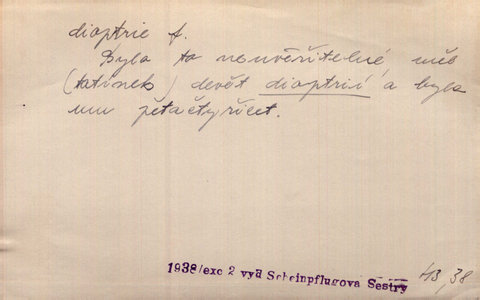 dioptrie f.
Bylo to neuvěřitelné, měl
(tatínek) devět dioptrií a bylo
mu pětačtyřicet.
1938/exc 2 vyd Scheinpflugova Sestry 43,38